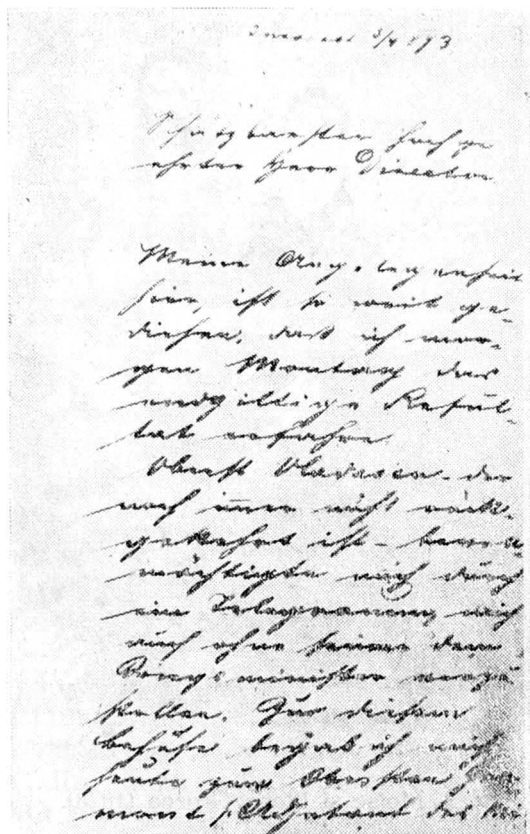 Schätzbarster hochge
ehrter Herr Direktor
Meine Angelegenheit
hier, ist so weit ge-
diehen, dass ich mor-
gen Montag das
endgiltige Resul-
tat erfahre
Oberst der
noch immer nicht rück-
gekehrt ist – bevoll-
mächtigte mich durch
ein Telegramm mich
auch ohne seiner dem
Kriegsminister vorzu
stellen. Zu diesem
Behufe begab ich mich
heute zum Obersten
Adjutant des